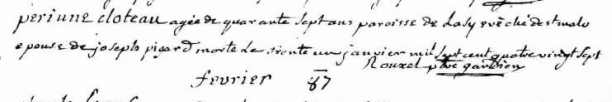 periune cloteau agée de quarante sept ans paroisse de Lasy evêché de st malo
epouse de joseph pigard morte Le trente un janvier mil sept cent quatre vingt sept
Rouxel ptre gardien
fevrier 87